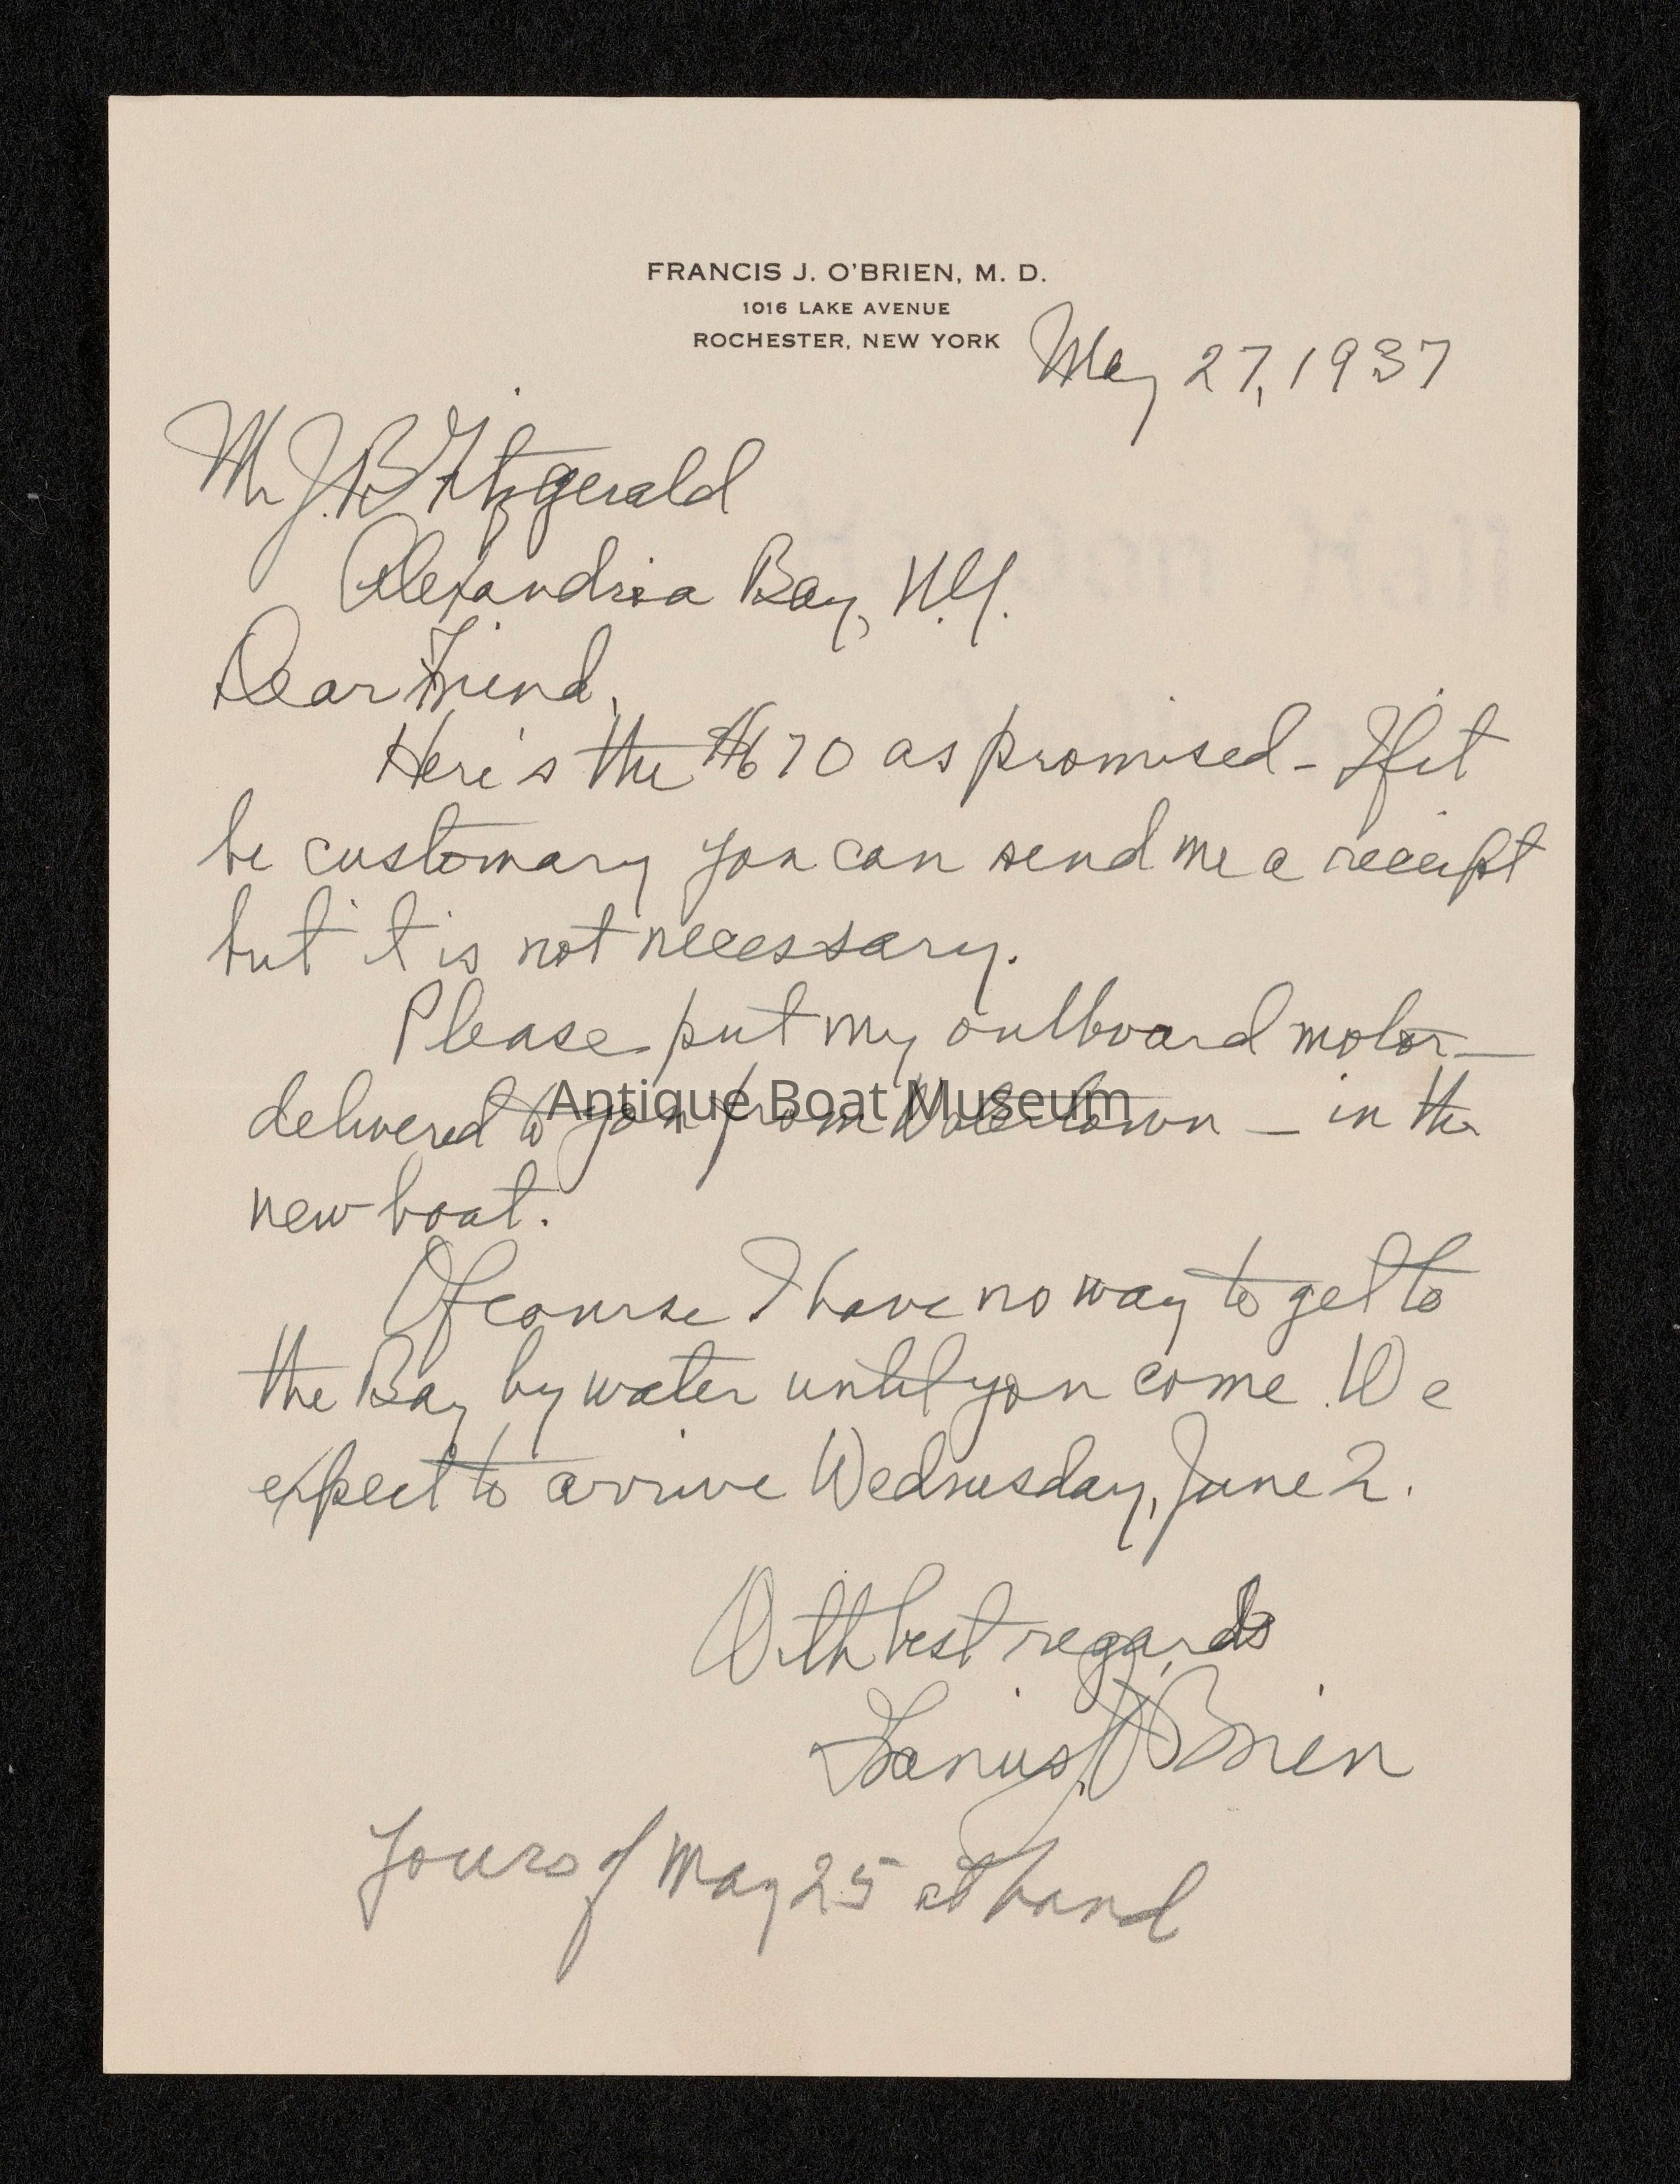 FRANCIS J. O'BRIEN, M. D.
1016 LAKE AVENUE
ROCHESTER, NEW YORK
May 27, 1937
Mr J.B. Fitzgerald
Alexandria Bay, N.Y.
Dear Friend,
Here's the $670 as promised - If it
be customary you can send me a receipt
but it is not necessary.
Please put my outboard motor —
delivered to you from Watertown — in the
new boat.
Antique Boat Museum
Of course I have no way to get to
the Bay by water until you come. We
expect to arrive Wednesday, June 2.
With best regards
Francis J O'Brien
Yours of May 25 at hand